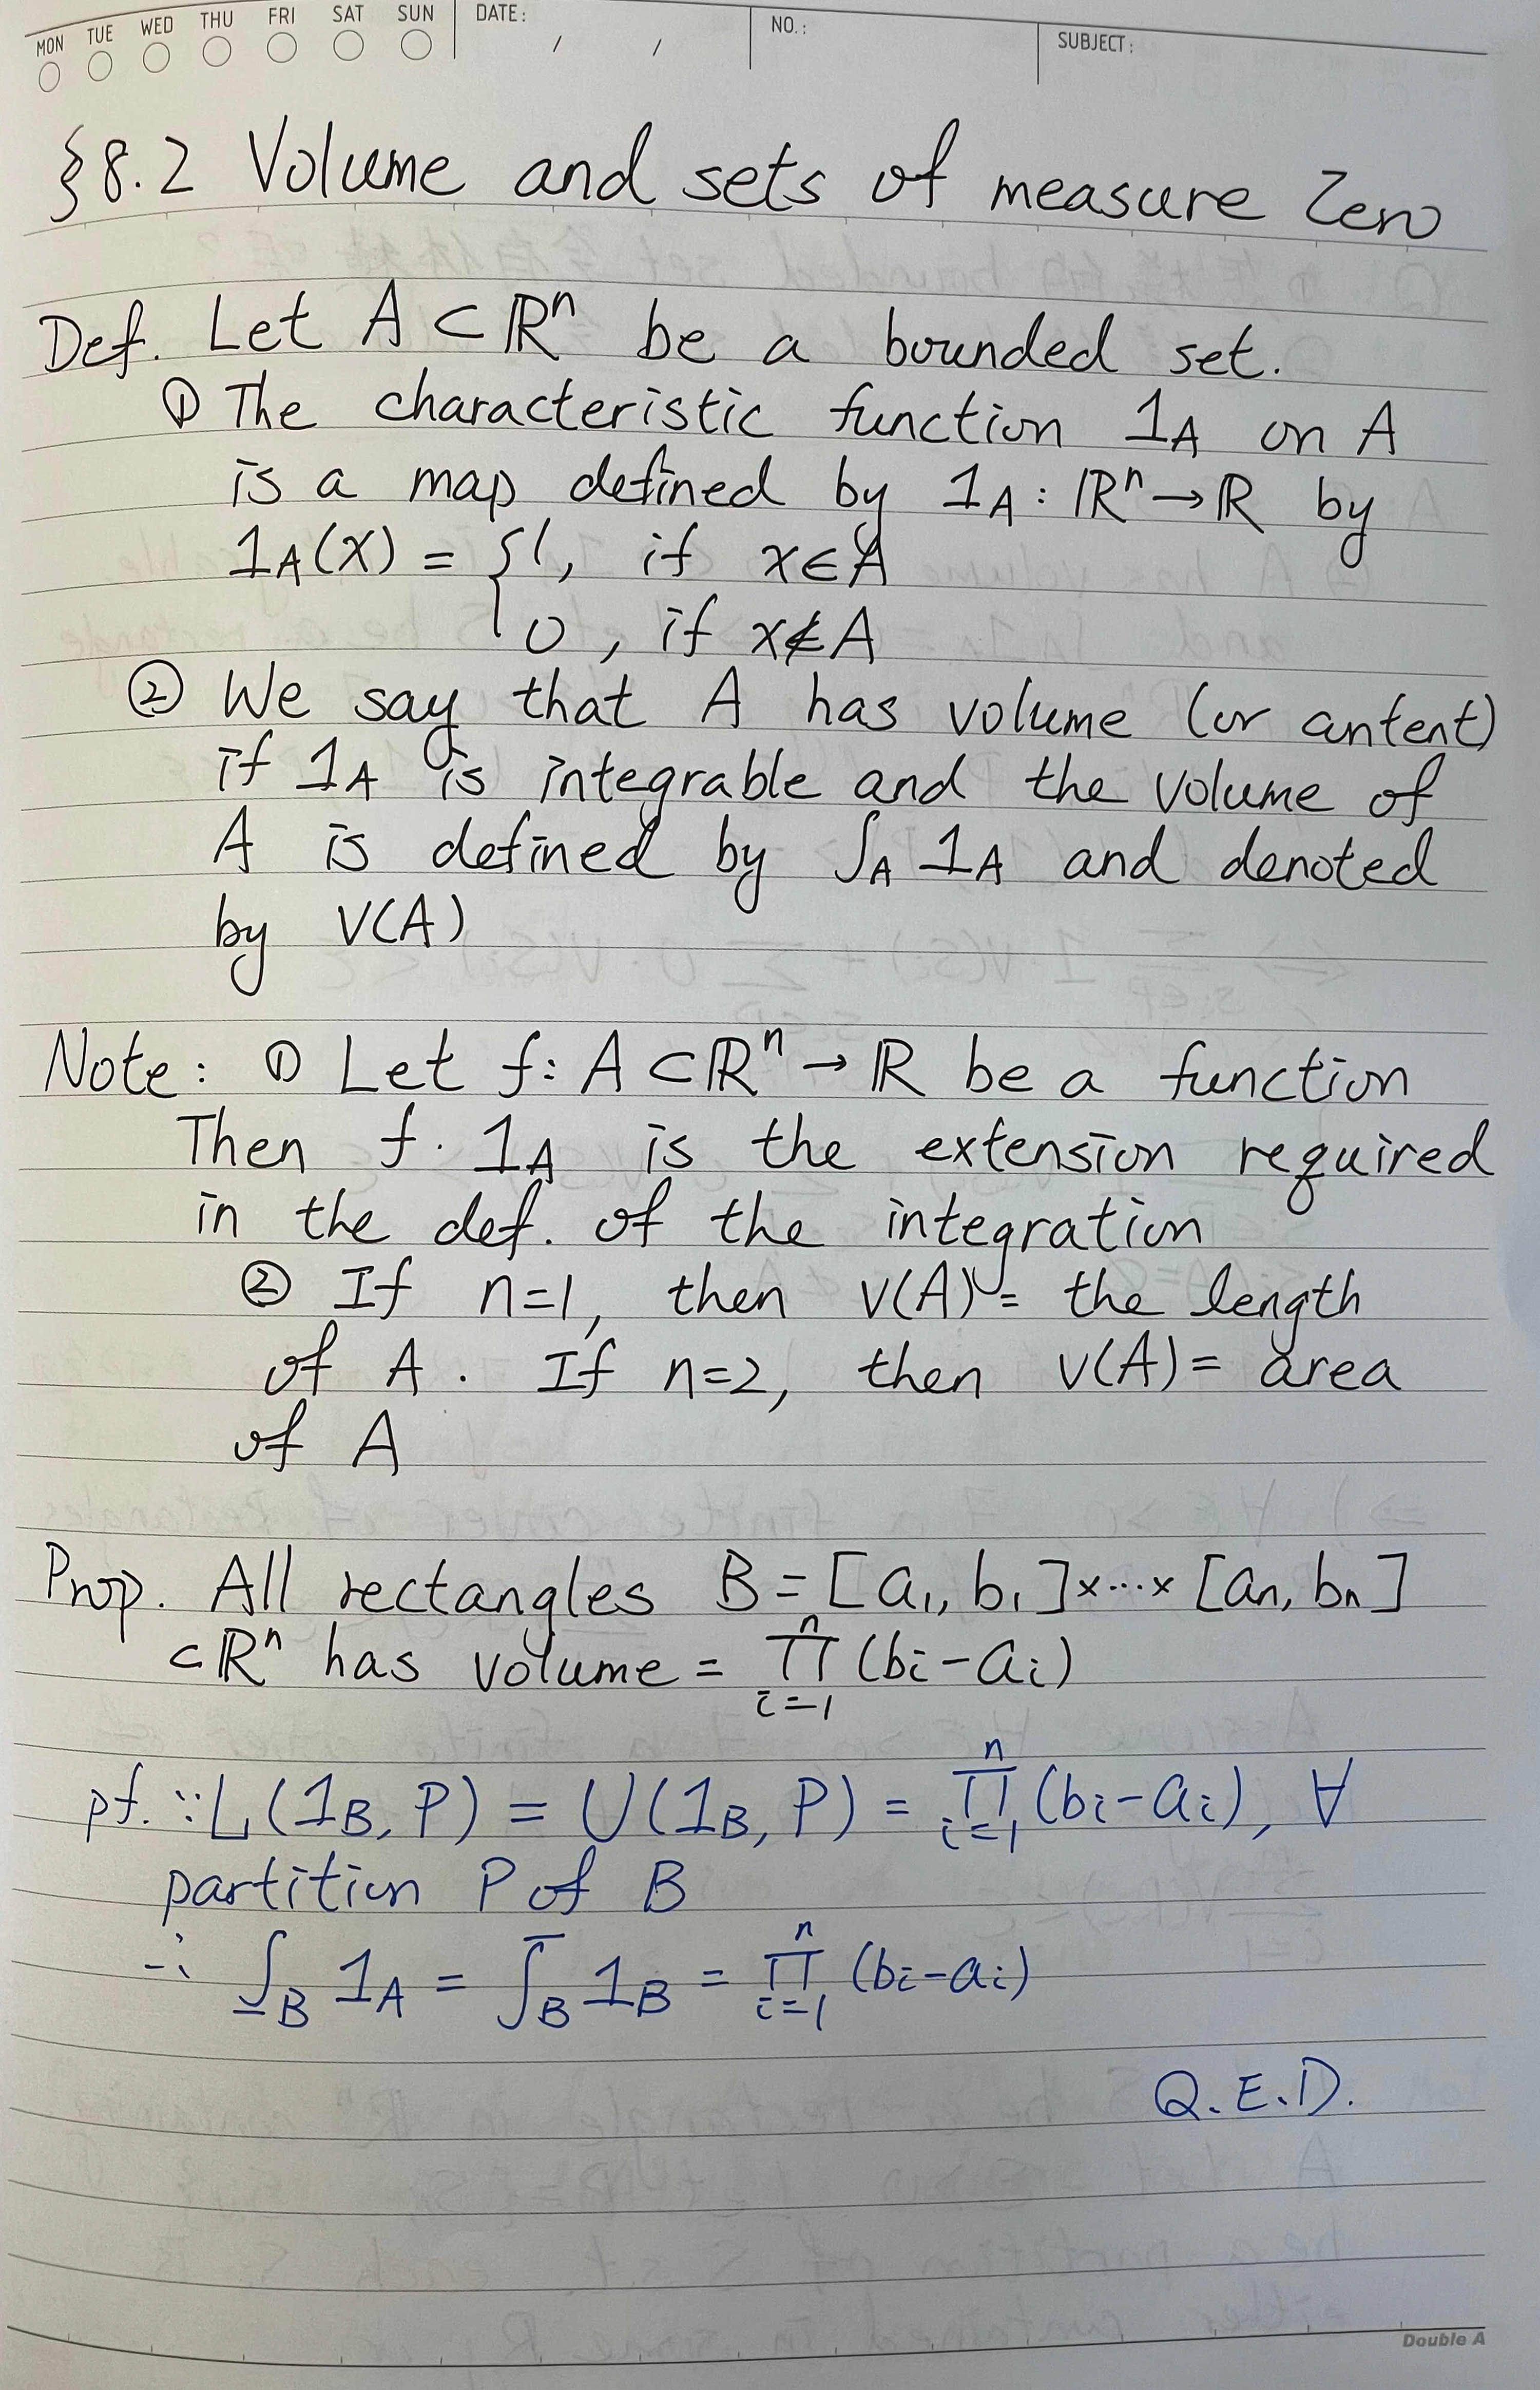 MON TUE WED THU FRI SAT SUN DATE: / / NO.: SUBJECT:
§8.2 Volume and sets of measure zero
Def. Let A⊂ℝⁿ be a bounded set.
① The characteristic function 1_A on A
is a map defined by 1_A: ℝⁿ→ℝ by
1_A(x) = { 1, if x∈A
0, if x∉A
② We say that A has volume (or content)
if 1_A is integrable and the volume of
A is defined by ∫_A 1_A and denoted
by v(A)
Note: ① Let f: A⊂ℝⁿ→ℝ be a function
Then f·1_A is the extension required
in the def. of the integration
② If n=1, then v(A) = the length
of A. If n=2, then v(A) = area
of A
Prop. All rectangles B=[a₁, b₁]×⋯×[aₙ, bₙ]
⊂ℝⁿ has volume = ∏_{i=1}^{n} (bᵢ-aᵢ)
pf. ∵ L(1_B, P) = U(1_B, P) = ∏_{i=1}^{n} (bᵢ-aᵢ), ∀
partition P of B
∴ \underline{∫}_B 1_A = \overline{∫}_B 1_B = ∏_{i=1}^{n} (bᵢ-aᵢ)
Q.E.D.
Double A